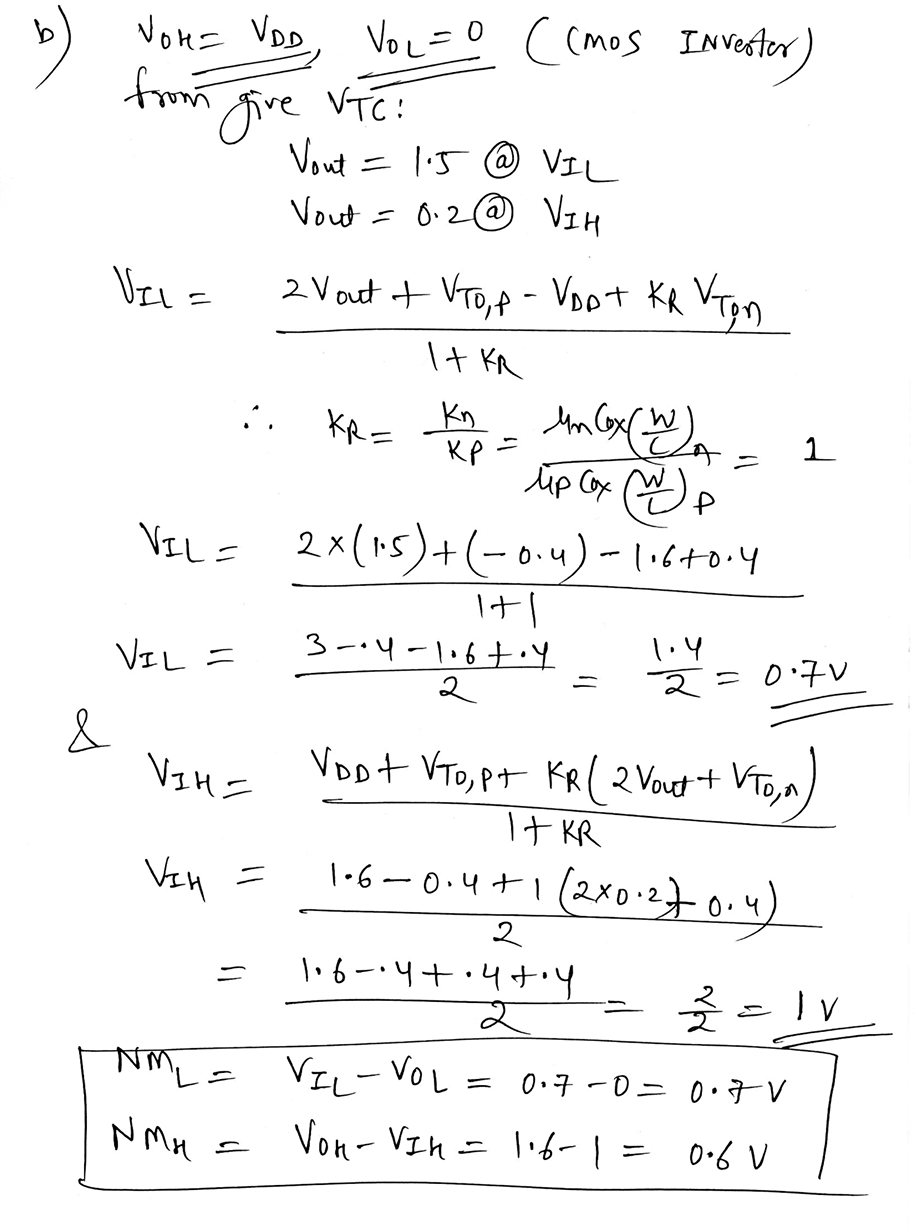 b) VOH = VDD, VOL = 0 (CMOS INverter)
from give VTC:
Vout = 1.5 @ VIL
Vout = 0.2 @ VIH
VIL = 2Vout + VTO,P - VDD + KR VTO,n
1 + KR
∴ KR = Kn / KP = μn Cox (W/L)n / μp Cox (W/L)P = 1
VIL = 2×(1.5)+(-0.4) - 1.6+0.4
1+1
VIL = 3-.4-1.6+.4 / 2 = 1.4 / 2 = 0.7V
&
VIH = VDD + VTO,P + KR(2Vout + VTO,n)
1 + KR
VIH = 1.6-0.4+1(2×0.2+0.4)
2
= 1.6-.4+.4+.4 / 2 = 2/2 = 1V
NML = VIL - VOL = 0.7-0 = 0.7V
NMH = VOH - VIH = 1.6-1 = 0.6V